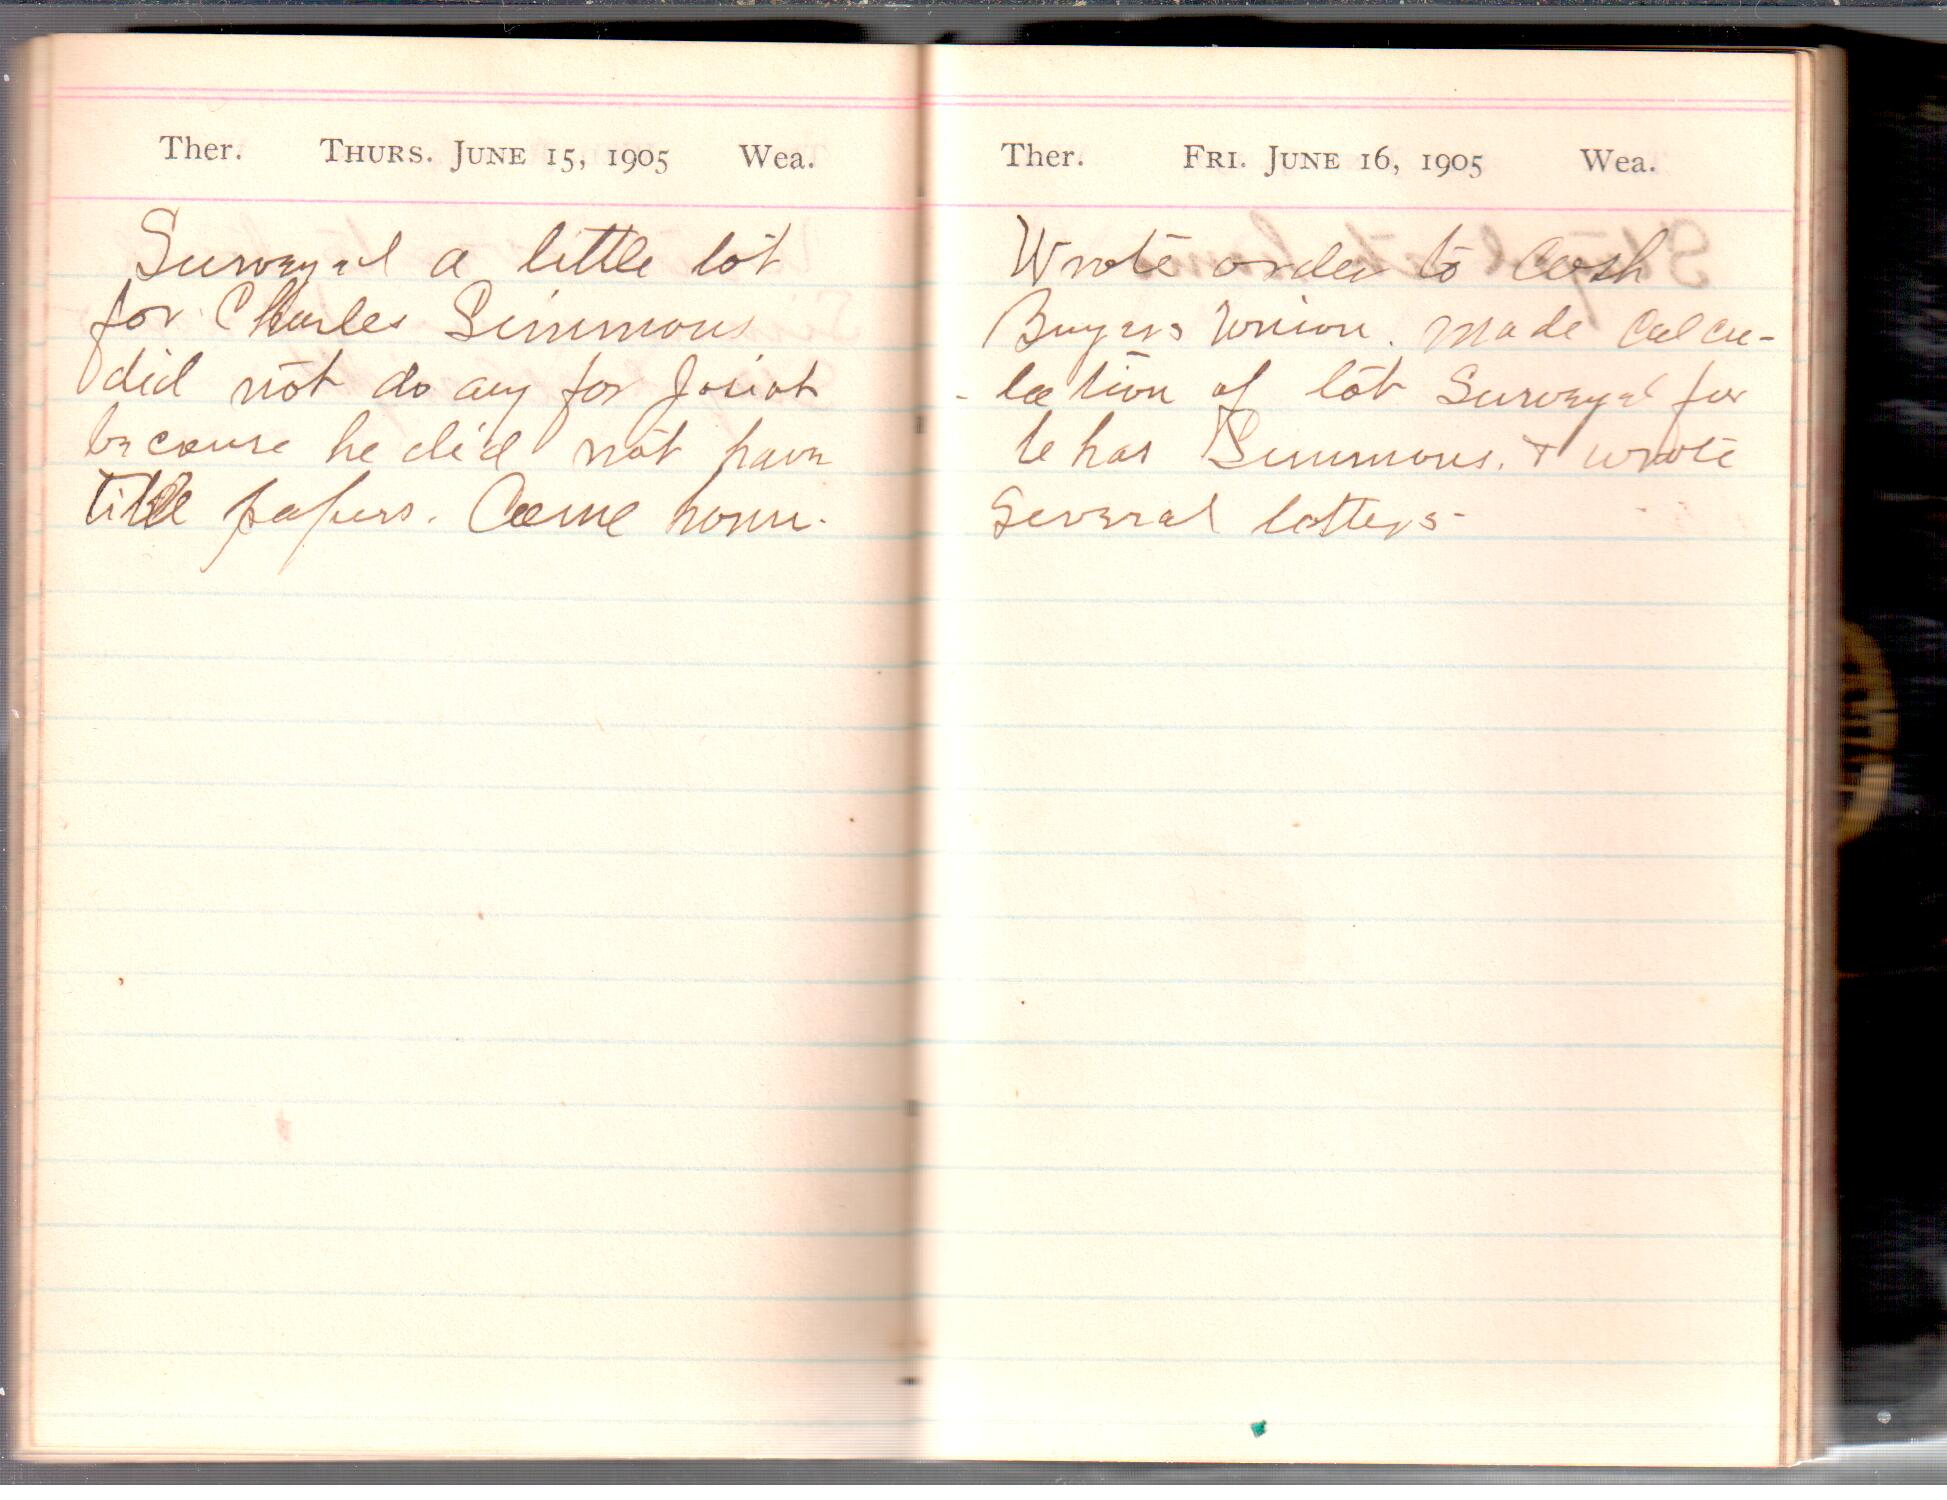 Ther. THURS. JUNE 15, 1905 Wea.
Surveyed a little lot
for Charles Simmons
did not do any for Josiah
because he did not have
title papers. Came home.
Ther. FRI. JUNE 16, 1905 Wea.
Wrote order to Cash
Buyers Union. Made Calcu-
-lation of lot Surveyed for
Chas Simmons. + wrote
Several letters-